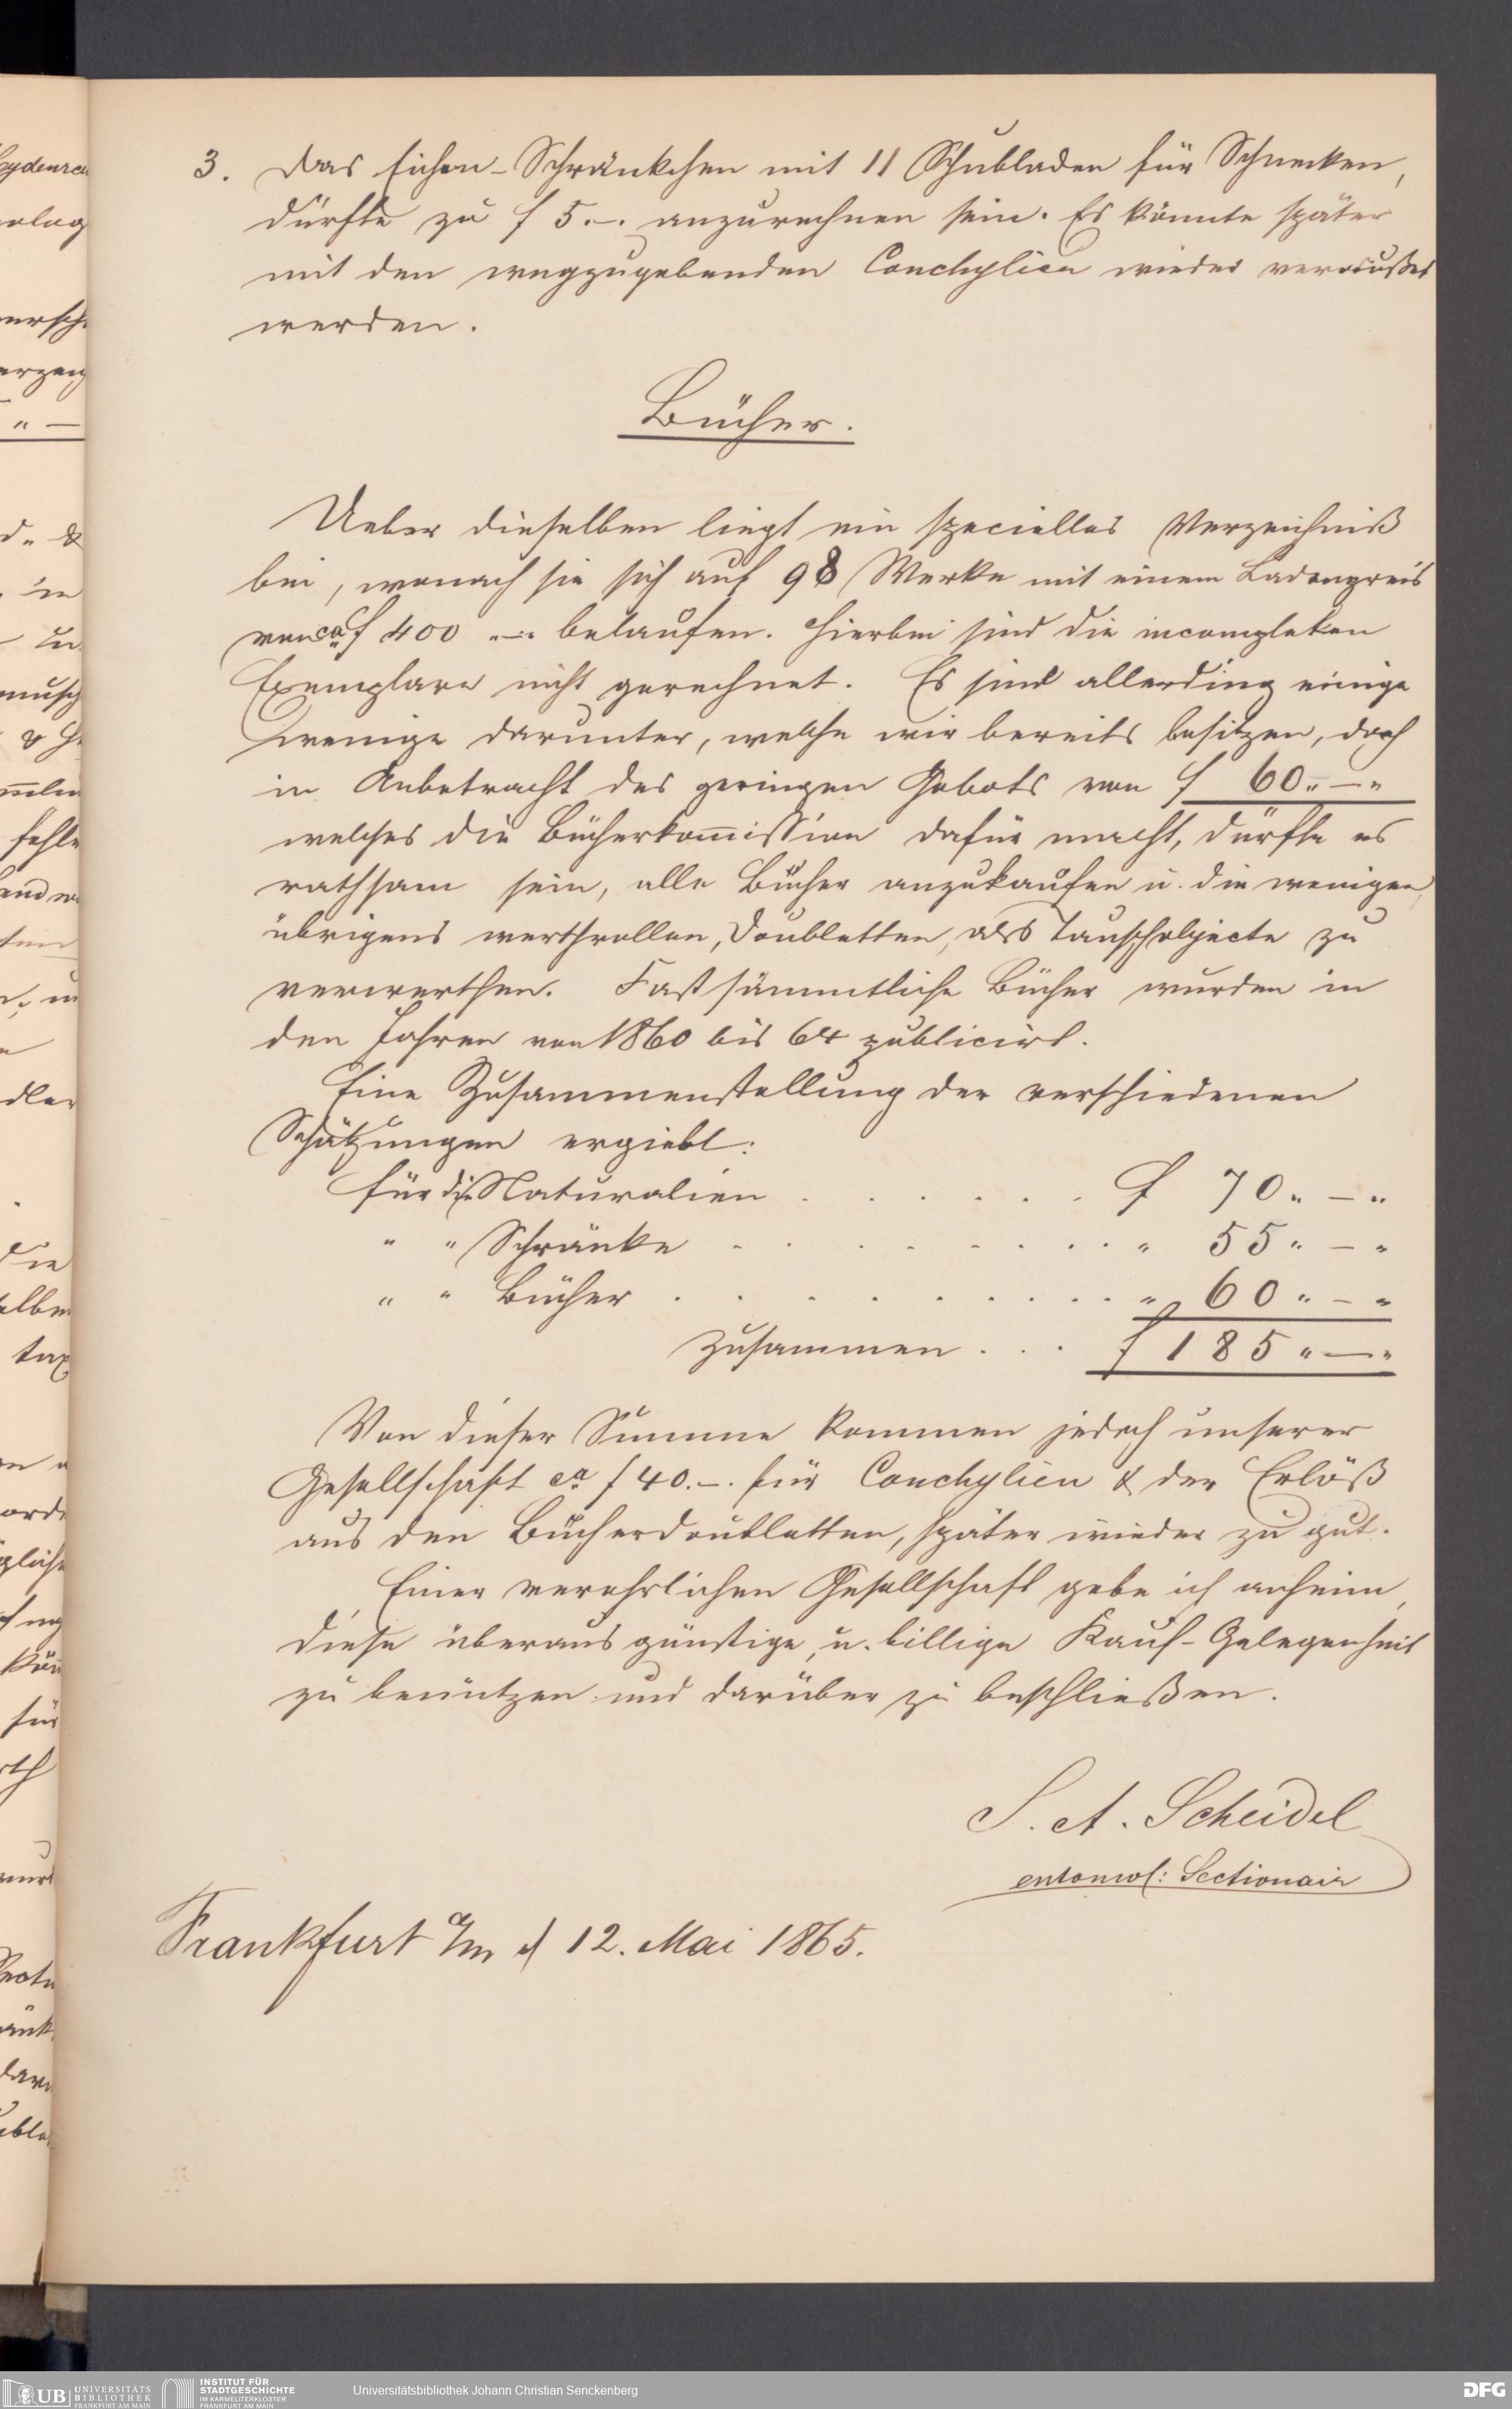 3. Das Eichen-Schränkchen mit 11 Schubladen für Schnecken,
dürfte zu f 5.–. anzurechnen sein. Es könnte später
mit den wegzugebenden Conchylien wieder veräußert
werden.
Bücher.
Ueber dieselben liegt ein specielles Verzeichniß
bei, wonach sie sich auf 98 Werke mit einem Ladenpreis
von ca f 400 „–„ belaufen. Hierbei sind die incompleten
Exemplare nicht gerechnet. Es sind allerding einige
wenige darunter, welche wir bereits besitzen, doch
in Anbetracht des geringen Gebots von f 60„–„
welches die Bücherkom̅ission dafür macht, dürfte es
rathsam sein, alle Bücher anzukaufen u. die wenigen,
übrigens werthvollen, Doubletten, als Tauschobjecte zu
verwerthen. Fast sämmtliche Bücher wurden in
den Jahren von 1860 bis 64 publicirt.
Eine Zusammenstellung der verschiedenen
Schätzungen ergiebt:
für die Naturalien . . . . . . f 70„–„
„ „ Schränke . . . . . . . . . „ 55„–„
„ „ Bücher . . . . . . . . . . „ 60„–„
Zusammen . . . f 185„–„
Von dieser Summe kommen jedoch unserer
Gesellschaft ca f 40.–. für Conchylien & der Erlöß
aus den Bücherdoubletten, später wieder zu gut.
Einer verehrlichen Gesellschaft gebe ich anheim,
diese überaus günstige, u. billige Kauf-Gelegenheit
zu benützen und darüber zu beschließen.
S. A. Scheidel
entomol: Sectionair
Frankfurt a/m d 12. Mai 1865.
UB UNIVERSITÄTS
BIBLIOTHEK
FRANKFURT AM MAIN
INSTITUT FÜR
STADTGESCHICHTE
IM KARMELITERKLOSTER
FRANKFURT AM MAIN
Universitätsbibliothek Johann Christian Senckenberg
DFG